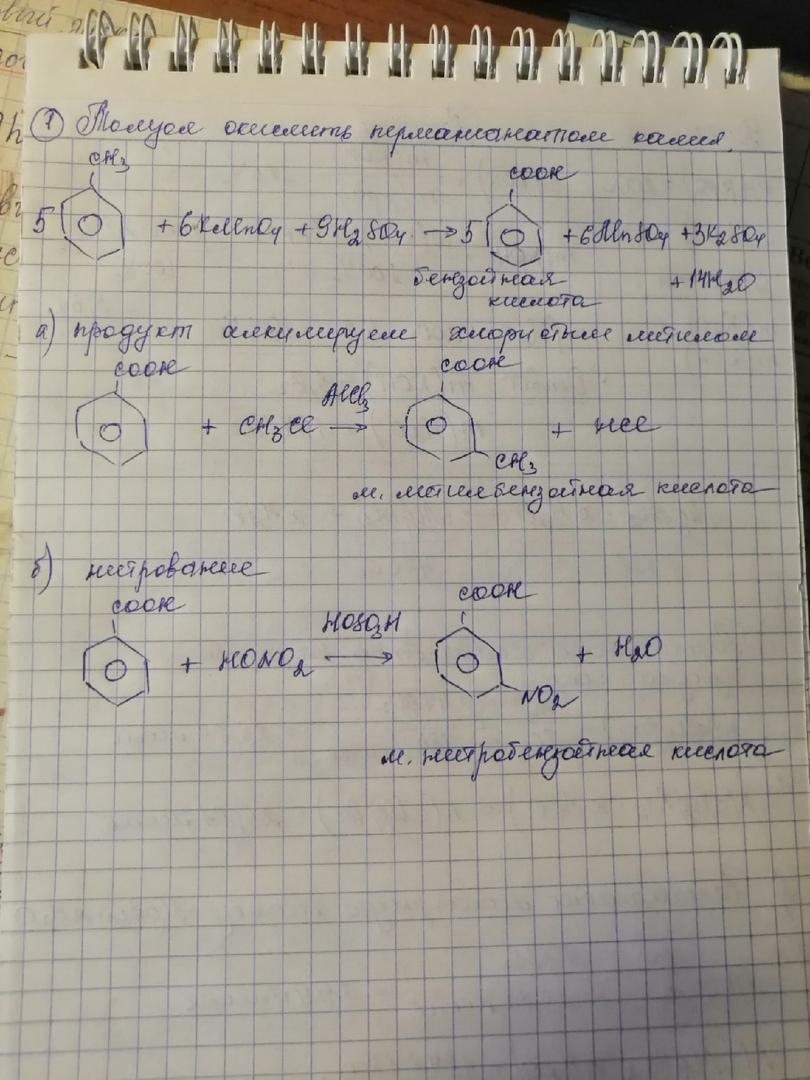 1 Толуол окислить перманганатом калия.
CH3 COOH
5 + 6KMnO4 + 9H2SO4 → 5 + 6MnSO4 + 3K2SO4
бензойная + 14H2O
кислота
а) продукт алкилируем хлористым метилом
COOH COOH
+ CH3Cl AlCl3 → + HCl
CH3
м. метилбензойная кислота
б) нитрование
COOH COOH
+ HONO2 HOSO3H → + H2O
NO2
м. нитробензойная кислота